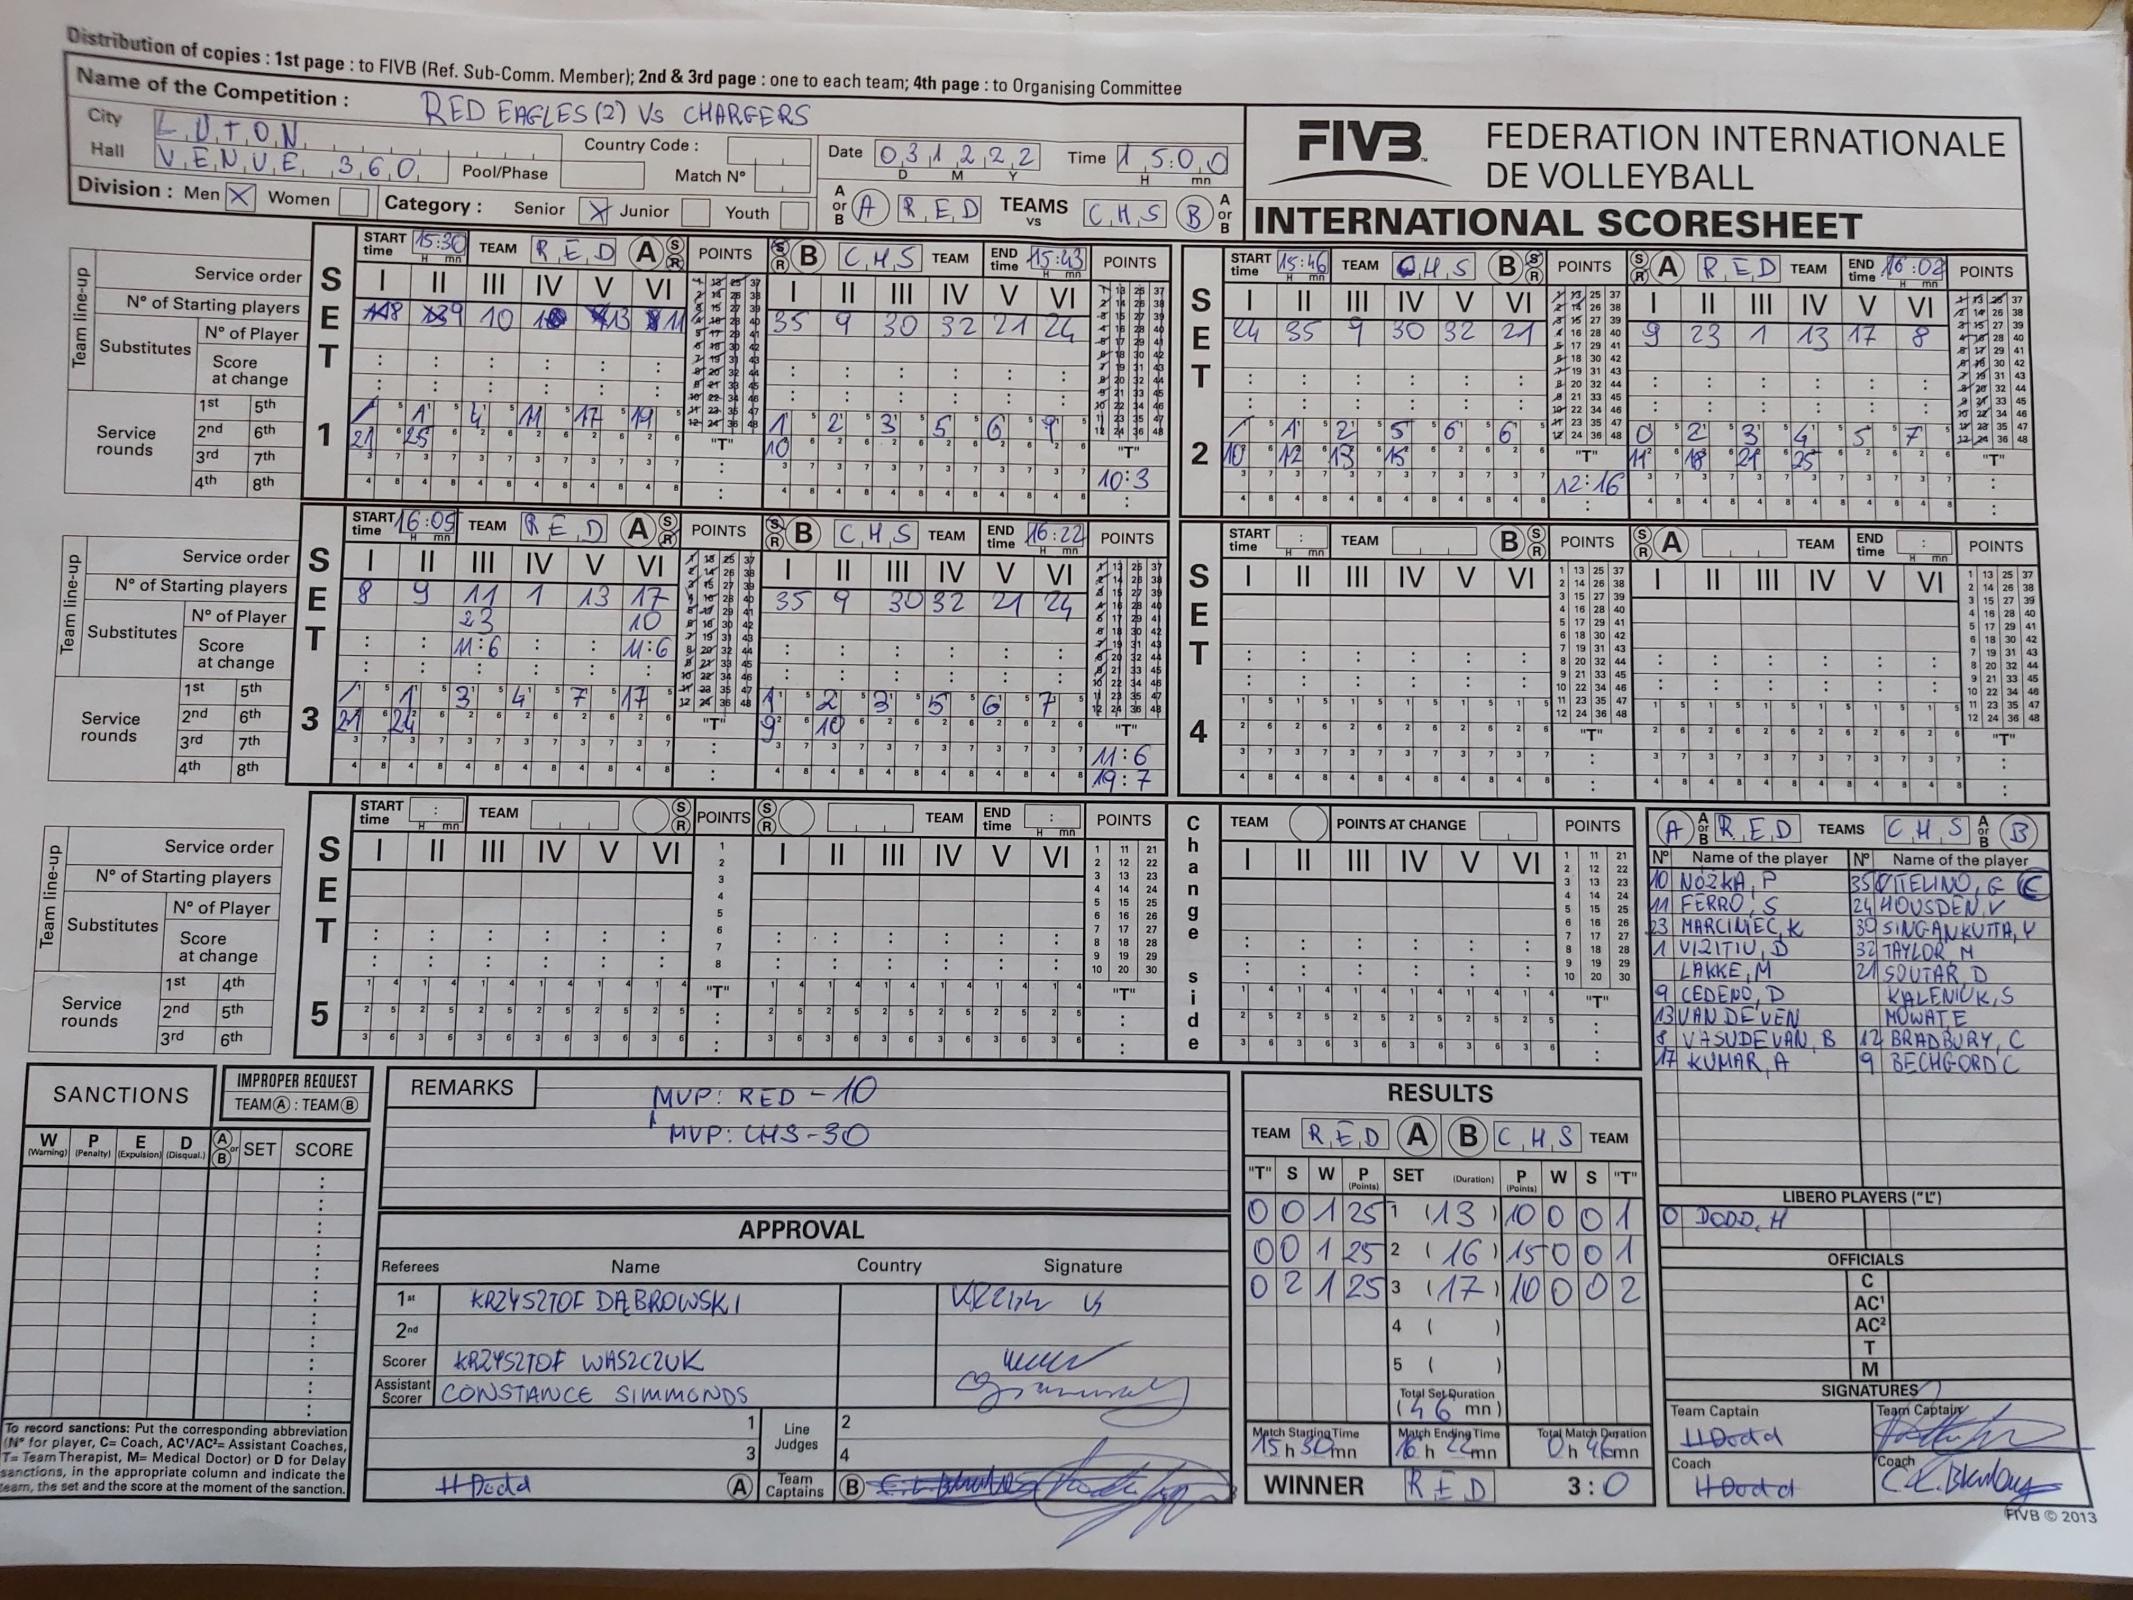 Distribution of copies : 1st page : to FIVB (Ref. Sub-Comm. Member); 2nd & 3rd page : one to each team; 4th page : to Organising Committee
Name of the Competition : RED EAGLES (2) Vs CHARGERS
City LUTON Country Code :
Hall VENUE 360 Pool/Phase Match Nº
Date 03 12 22 Time 15:00
D M Y H mn
Division : Men X Women Category : Senior X Junior Youth
A or B A RED TEAMS vs CHS B A or B
FIVB FEDERATION INTERNATIONALE
DE VOLLEYBALL
INTERNATIONAL SCORESHEET
SET 1
START time 15:30 TEAM RED A S R POINTS S R B CHS TEAM END time 15:43 POINTS
Service order I II III IV V VI I II III IV V VI
Nº of Starting players 8 9 10 1 13 11 35 9 30 32 21 24
Substitutes Nº of Player
Score at change
Team line-up
Service rounds
1st 5th 1 4 11 17 19 1 2 3 5 6 9
2nd 6th 21 25 10
3rd 7th
4th 8th
"T" "T" 10:3
SET 2
START time 15:46 TEAM CHS B S R POINTS S R A RED TEAM END time 16:02 POINTS
I II III IV V VI I II III IV V VI
24 35 9 30 32 21 9 23 1 13 17 8
1 2 5 6 6 0 2 3 4 5 7
10 12 13 15 11 18 21 25
"T" 12:16 "T"
SET 3
START time 16:05 TEAM RED A S R POINTS S R B CHS TEAM END time 16:22 POINTS
Service order I II III IV V VI I II III IV V VI
Nº of Starting players 8 9 11 1 13 17 35 9 30 32 21 24
Substitutes Nº of Player 23 10
Score at change 11:6 11:6
Team line-up
Service rounds
1st 5th 1 3 4 7 17 1 2 3 5 6 7
2nd 6th 21 24 9 10
3rd 7th
4th 8th
"T" "T" 11:6
19:7
SET 4
START time : TEAM B S R POINTS S R A TEAM END time : POINTS
I II III IV V VI I II III IV V VI
"T" "T"
SET 5
START time : TEAM S R POINTS S R TEAM END time : POINTS
Service order I II III IV V VI I II III IV V VI
Nº of Starting players
Substitutes Nº of Player
Score at change
Team line-up
Service rounds
1st 4th
2nd 5th
3rd 6th
"T" "T"
Change side
TEAM POINTS AT CHANGE POINTS
I II III IV V VI
"T"
A A or B RED TEAMS CHS A or B B
Nº Name of the player Nº Name of the player
10 NÓŻKA, P 35 VITELINO, G C
11 FERRO, S 24 HOUSDEN, V
23 MARCINIEC, K 30 SINGANKUTTA, Y
1 VIZITIU, D 32 TAYLOR, M
LAKKE, M 21 SOUTAR, D
9 CEDENO, D KALENIUK, S
13 VAN DE VEN MOWAT, E
8 VASUDEVAN, B 12 BRADBURY, C
17 KUMAR, A 9 BECHGORD C
LIBERO PLAYERS ("L")
0 DODD, H
OFFICIALS
C
AC¹
AC²
T
M
SIGNATURES
Team Captain Team Captain
H Dodd
Coach Coach
H Dodd
FIVB © 2013
SANCTIONS
IMPROPER REQUEST
TEAM A : TEAM B
W (Warning) P (Penalty) E (Expulsion) D (Disqual.) A or B SET SCORE
To record sanctions: Put the corresponding abbreviation
(Nº for player, C= Coach, AC¹/AC²= Assistant Coaches,
T= Team Therapist, M= Medical Doctor) or D for Delay
sanctions, in the appropriate column and indicate the
team, the set and the score at the moment of the sanction.
REMARKS
MVP: RED - 10
MVP: CHS - 30
APPROVAL
Referees Name Country Signature
1st KRZYSZTOF DĄBROWSKI
2nd
Scorer KRZYSZTOF WASZCZUK
Assistant Scorer CONSTANCE SIMMONDS
1 Line Judges 2
3 4
H Dodd A Team Captains B
RESULTS
TEAM RED A B CHS TEAM
"T" S W P (Points) SET (Duration) P (Points) W S "T"
0 0 1 25 1 (13) 10 0 0 1
0 0 1 25 2 (16) 15 0 0 1
0 2 1 25 3 (17) 10 0 0 2
4 ( )
5 ( )
Total Set Duration
(46 mn)
Match Starting Time Match Ending Time Total Match Duration
15 h 30 mn 16 h 22 mn 0 h 46 mn
WINNER RED 3 : 0